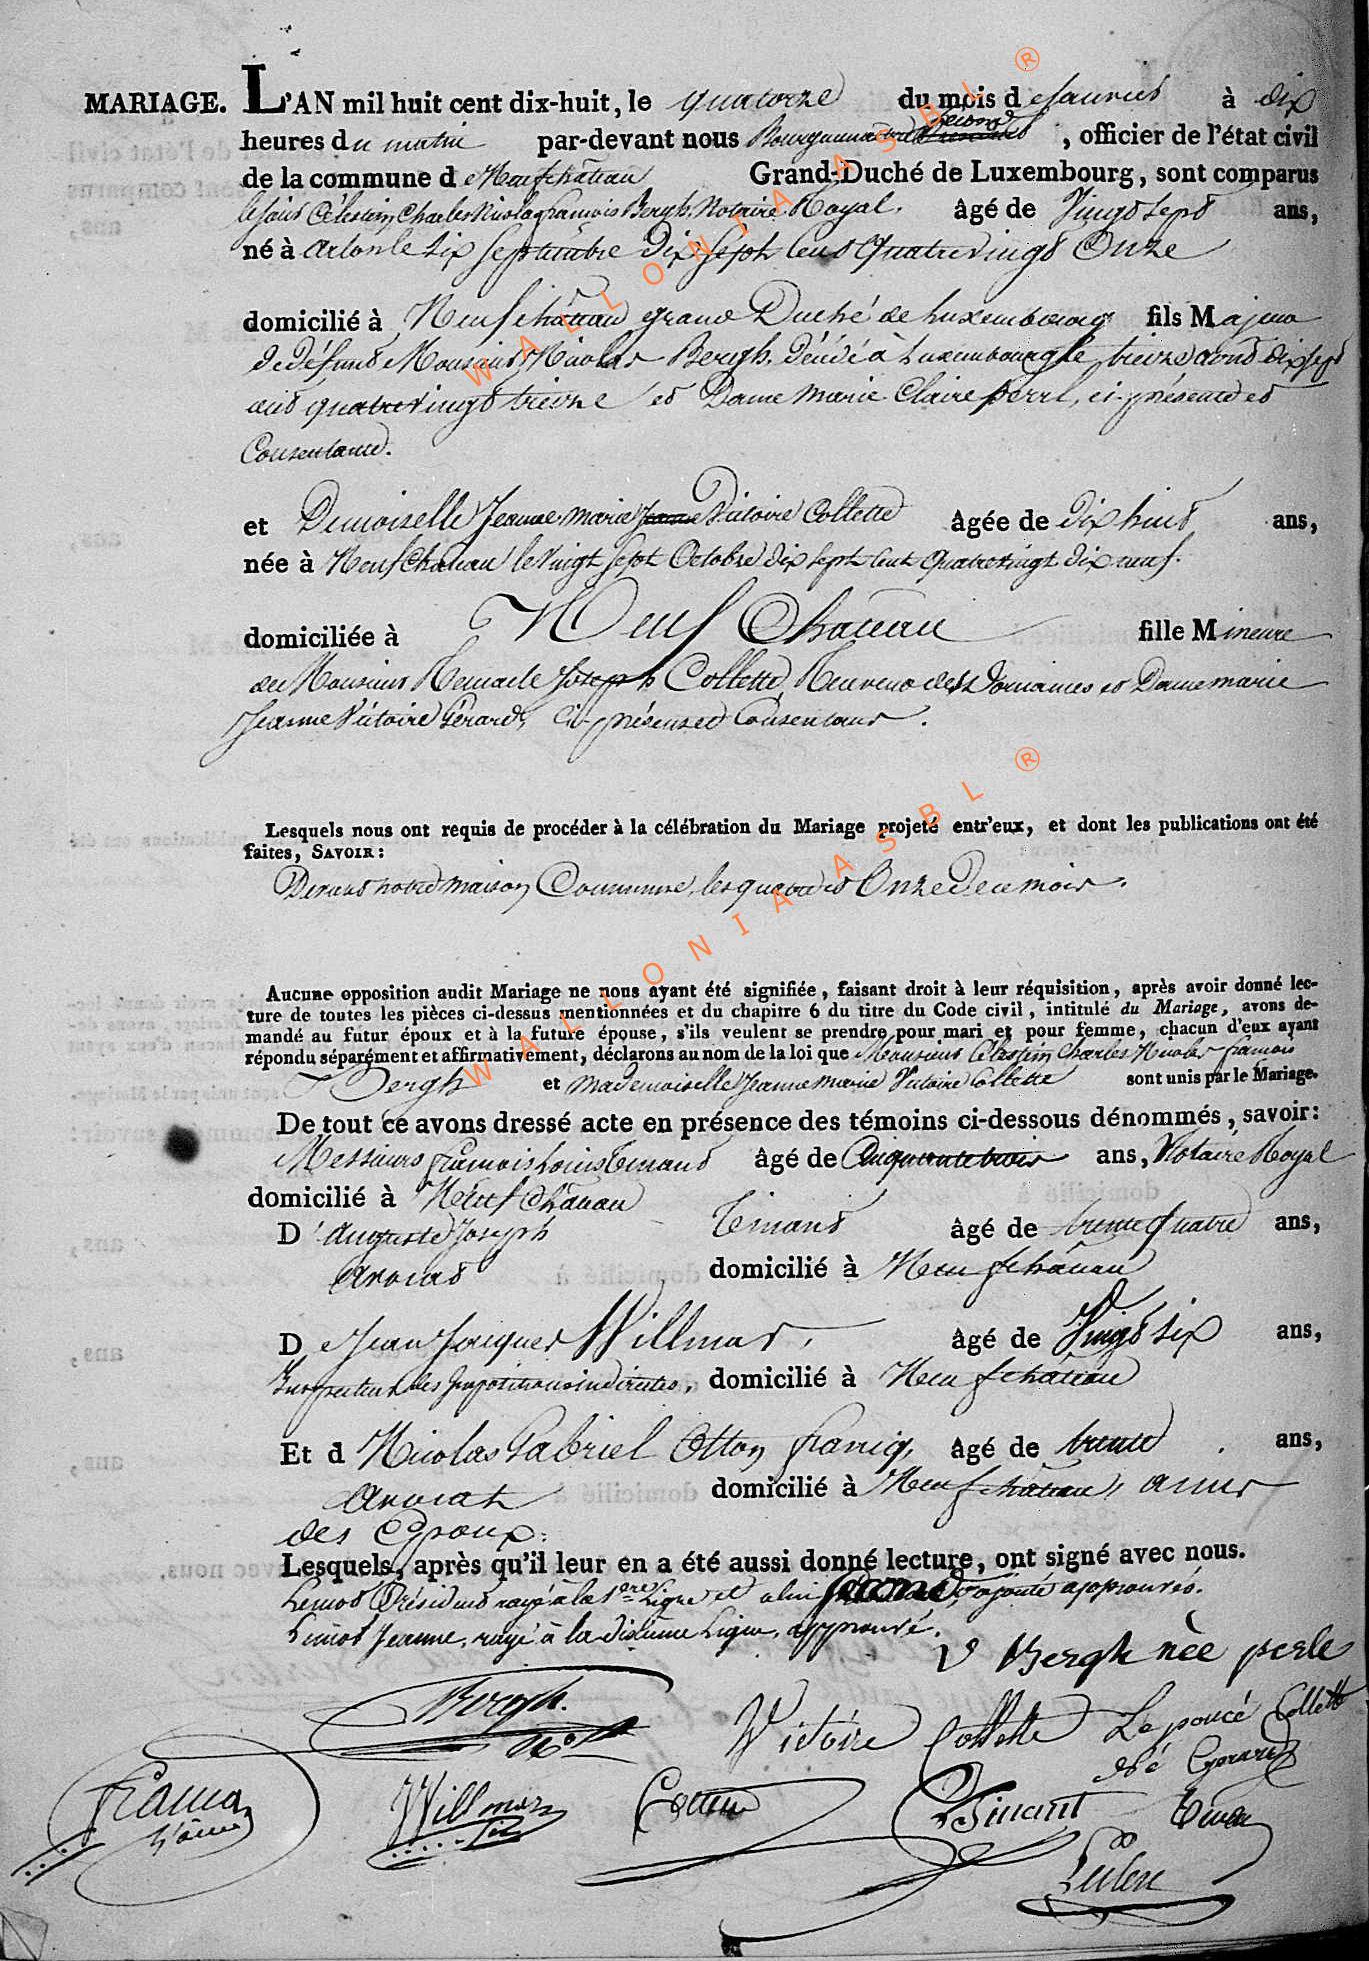 MARIAGE. L'AN mil huit cent dix-huit, le quatorze du mois de Janvier à dix
heures du matin par-devant nous Bourguemaitre second, officier de l'état civil
de la commune de Neufchâteau Grand-Duché de Luxembourg, sont comparus
le sieur Célestin Charles Nicolas francois Bergh, Notaire Royal, âgé de Vingt sept ans,
né à arlon le six septembre dix sept cent quatre vingt Onze
domicilié à Neufchâteau grand Duché de Luxembourg fils Majeur
de défunt Monsieur Nicolas Bergh, décédé à Luxembourg le treize aout dix sept
cent quatre vingt treize et Dame Marie Claire perrl, ci-présente et
Consentante.
et Demoiselle Jeanne Marie Jeanne Victoire Collette âgée de dix huit ans,
née à Neufchateau le Vingt sept Octobre dix sept cent quatre vingt dix neuf.
domiciliée à Neufchateau fille Mineure
de Monsieur Remacle Joseph Collette, Receveur des Domaines et Dame marie
Jeanne Victoire Gérard, ci-présens et Consentans.
Lesquels nous ont requis de procéder à la célébration du Mariage projeté entr'eux, et dont les publications ont été
faites, SAVOIR:
Devant notre maison Commune, les quatre et Onze de ce mois.
Aucune opposition audit Mariage ne nous ayant été signifiée, faisant droit à leur réquisition, après avoir donné lec-
ture de toutes les pièces ci-dessus mentionnées et du chapitre 6 du titre du Code civil, intitulé du Mariage, avons de-
mandé au futur époux et à la future épouse, s'ils veulent se prendre pour mari et pour femme, chacun d'eux ayant
répondu séparément et affirmativement, déclarons au nom de la loi que Monsieur Celestin Charles Nicolas francois
Bergh et Mademoiselle Jeanne marie Victoire Collette sont unis par le Mariage.
De tout ce avons dressé acte en présence des témoins ci-dessous dénommés, savoir:
Messieurs francois Louis Tinant âgé de Cinquante trois ans, Notaire Royal
domicilié à Neufchâteau
D' Auguste Joseph Tinant âgé de trente quatre ans,
Avocat domicilié à Neufchâteau
De Jean Jacques Willmar, âgé de Vingt six ans,
Inspecteur des impositions indirectes, domicilié à Neufchâteau
Et d Nicolas Gabriel Otton francq, âgé de trente ans,
Avocat domicilié à Neufchateau, amis
des Epoux.
Lesquels, après qu'il leur en a été aussi donné lecture, ont signé avec nous.
Le mot Président rayé à la 2.me Ligne et celui second ajouté approuvés.
Le mot Jeanne, rayé à la dixième Ligne, approuvé.
V Bergh nèe perle
Bergh.
Not
Victoire Collette
Collette
né Gerard
Willmar
Tinant
WALLONIA ASBL ®
WALLONIA ASBL ®